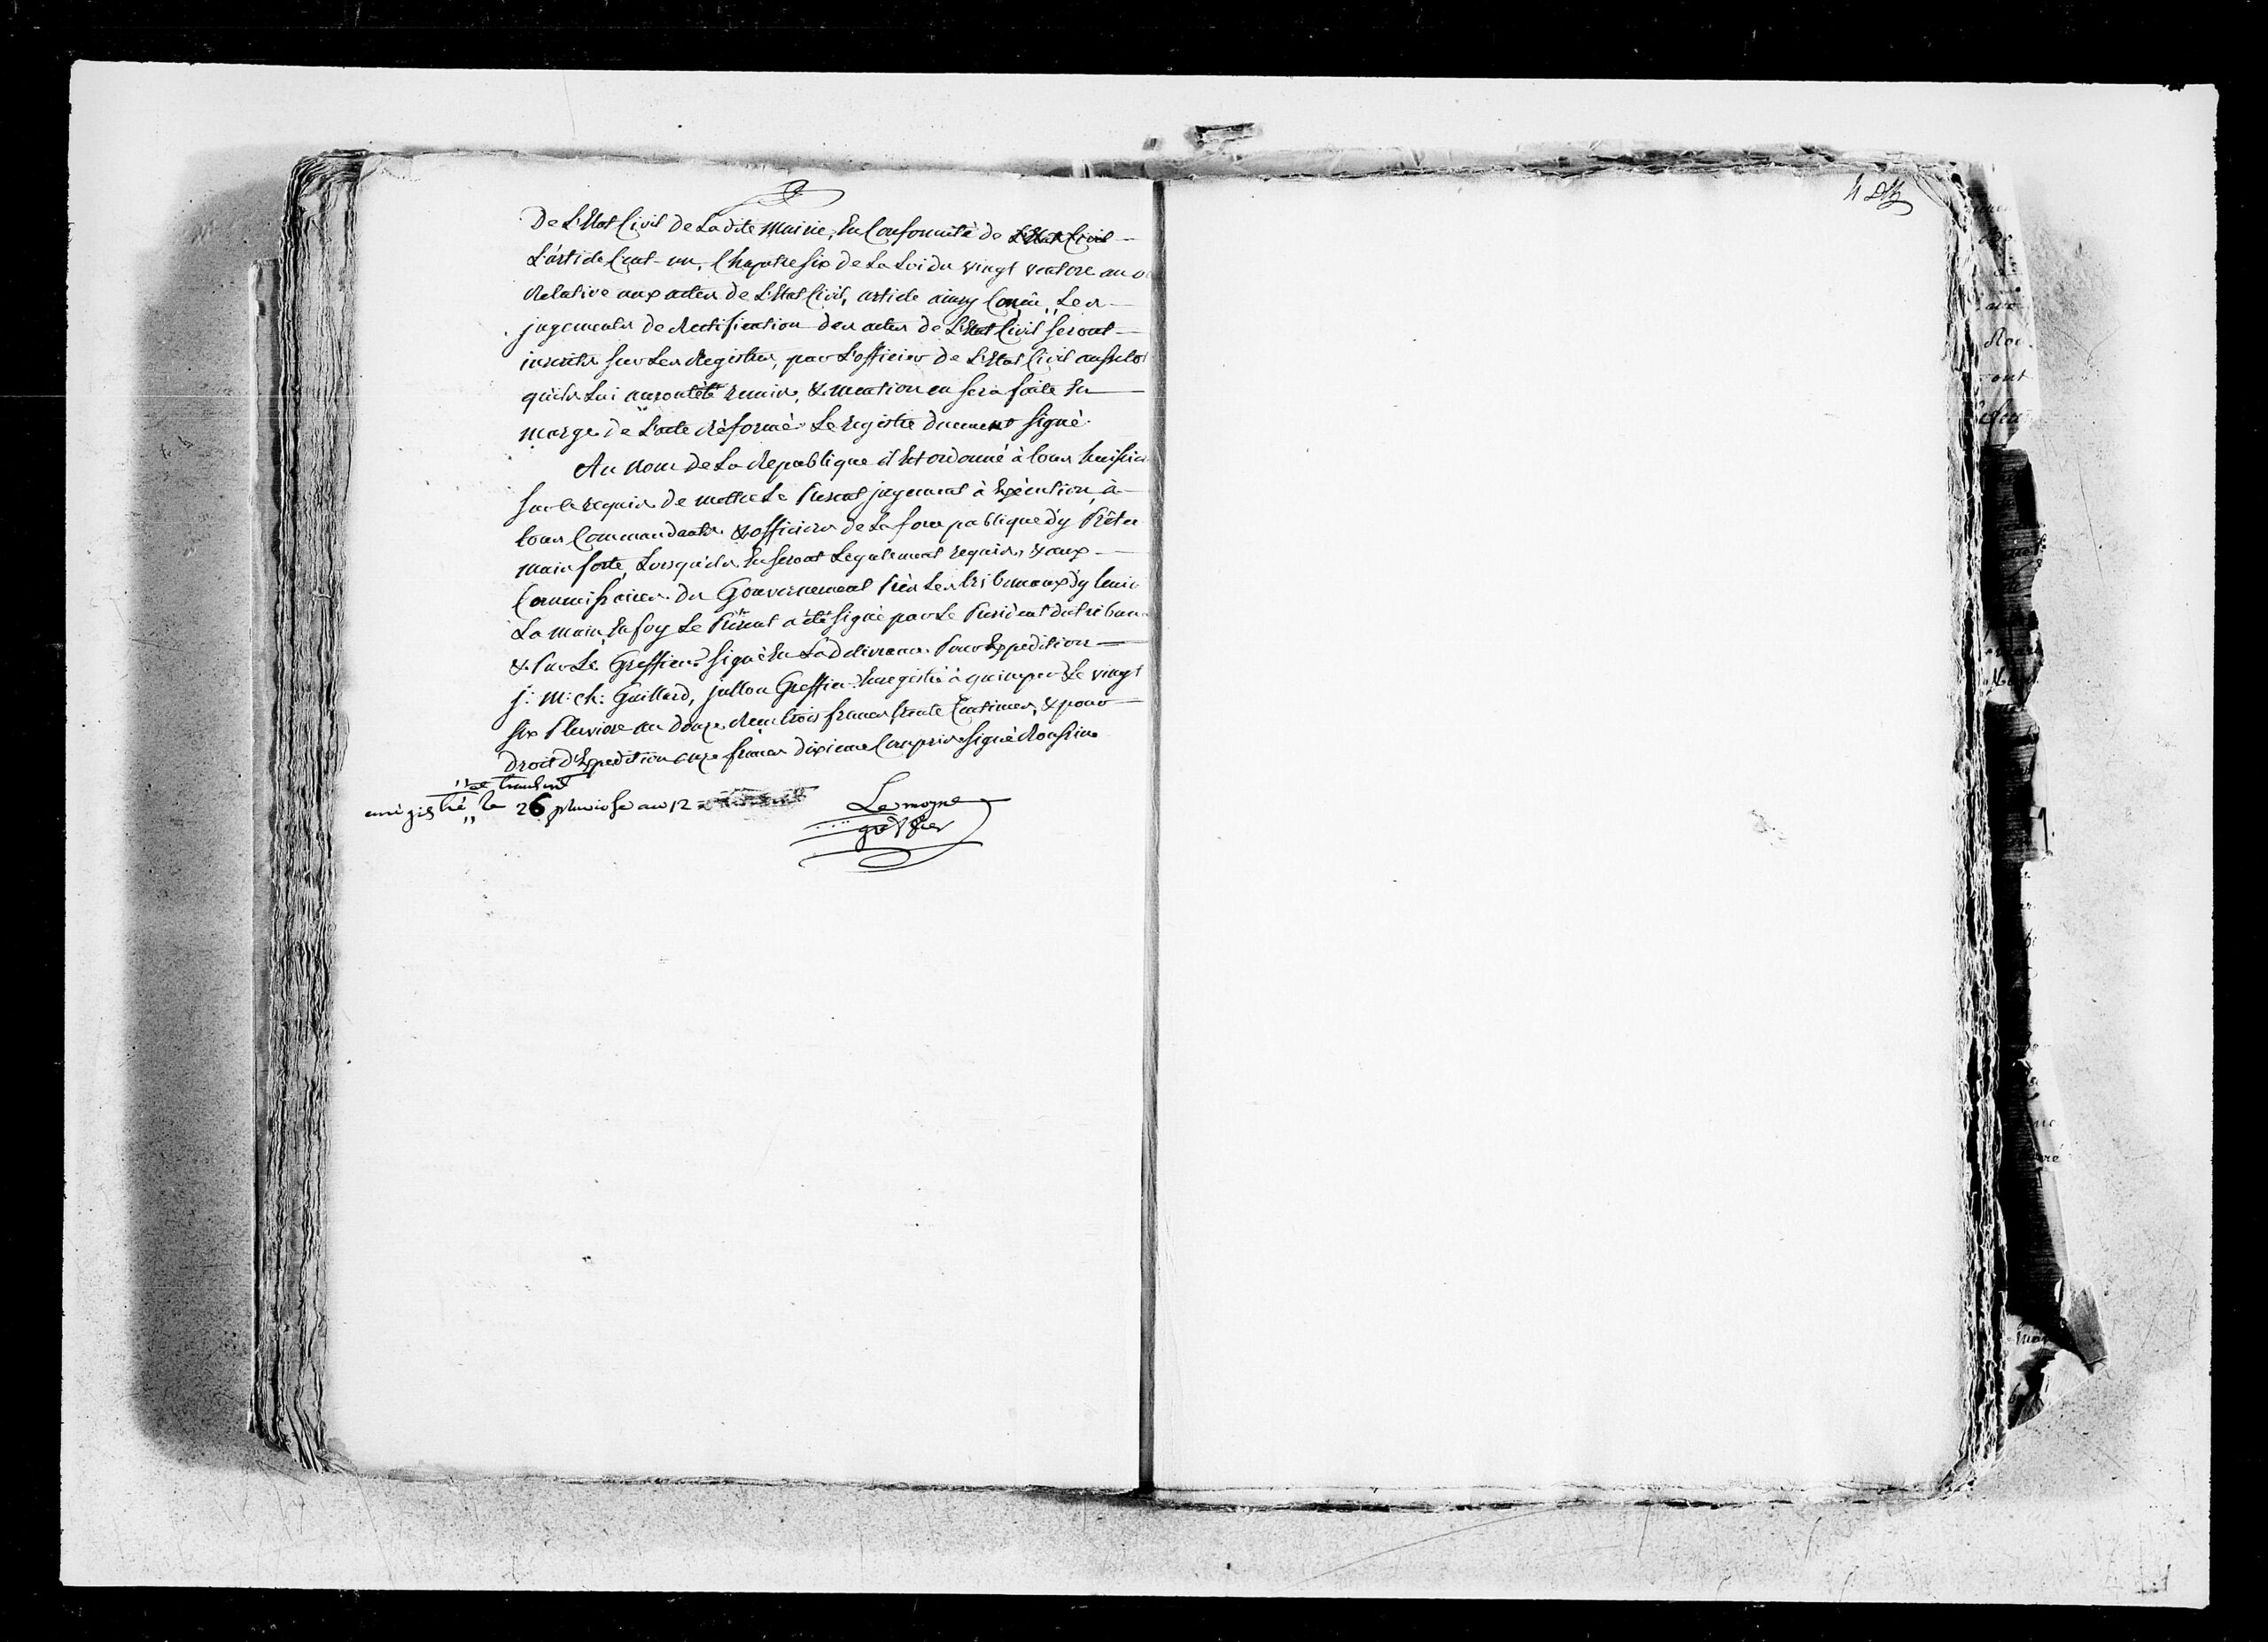 De L'Etat Civil de Ladite Mairie, En Conformité de L'Etat Civil
L'article Cent-un, Chapitre Six de La Loi du vingt ventose an
Relative aux actes de L'Etat Civil, article ainsy Conçû, Les
jugements de Rectification des actes de L'Etat Civil Seront
inscrits Sur Les Registres, par L'officier de L'Etat Civil aussitot
qu'ils Lui auront été remis, & mention en Sera faite En
marge de L'acte Réformé. Le registre duement Signé.
Au Nom de La Republique il Est ordonné à tous huissiers
Sur ce requis de mettre Le Present jugement à Exécution, à
tous Commandants & officiers de La force publique d'y Prêter
main forte, Lorsqu'ils En Seront Legalement requis, & aux
Commissaires du Gouvernement Près Les tribunaux d'y tenir
La main, En foy Le Présent a été Signé par Le President du tribunal
& Par Le Greffier. Signé En La Delivrance. Pour Expedition
j: M: ch: Guillard, jullou Greffier. Enregistré à quimper Le vingt
Six Pluviose an Douze, Reçu trois francs trente Centimes, & pour
Droit d'Expedition onze francs dixieme Compris Signé
et transcrit
enrégistré le 26 pluviose an 12
Lemoyne
greffier